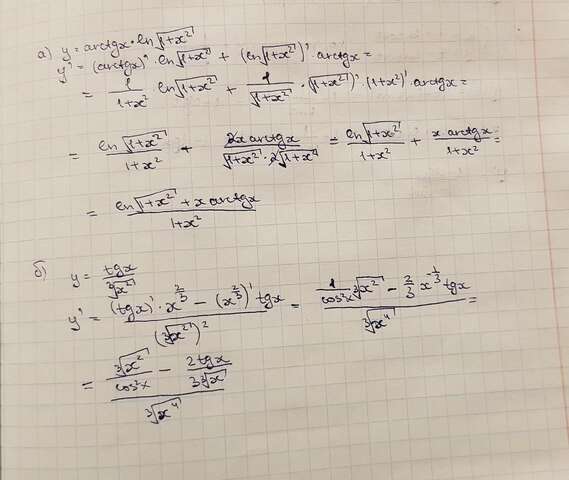 а) y = arctgx · ln√(1+x²)
y' = (arctgx)' · ln√(1+x²) + (ln√(1+x²))' arctgx =
= 1/(1+x²) ln√(1+x²) + 1/√(1+x²) · (√(1+x²))' · (1+x²)' arctgx =
= ln√(1+x²)/(1+x²) + 2x arctgx/(√(1+x²) · 2√(1+x²)) = ln√(1+x²)/(1+x²) + x arctgx/(1+x²) =
= (ln√(1+x²) + x arctgx)/(1+x²)
б) y = tgx/∛(x²)
y' = ((tgx)' · x^(2/3) − (x^(2/3))' tgx)/(∛(x²))² = (1/cos²x ∛(x²) − 2/3 x^(-1/3) tgx)/∛(x⁴) =
= (∛(x²)/cos²x − 2tgx/(3∛x))/∛(x⁴)